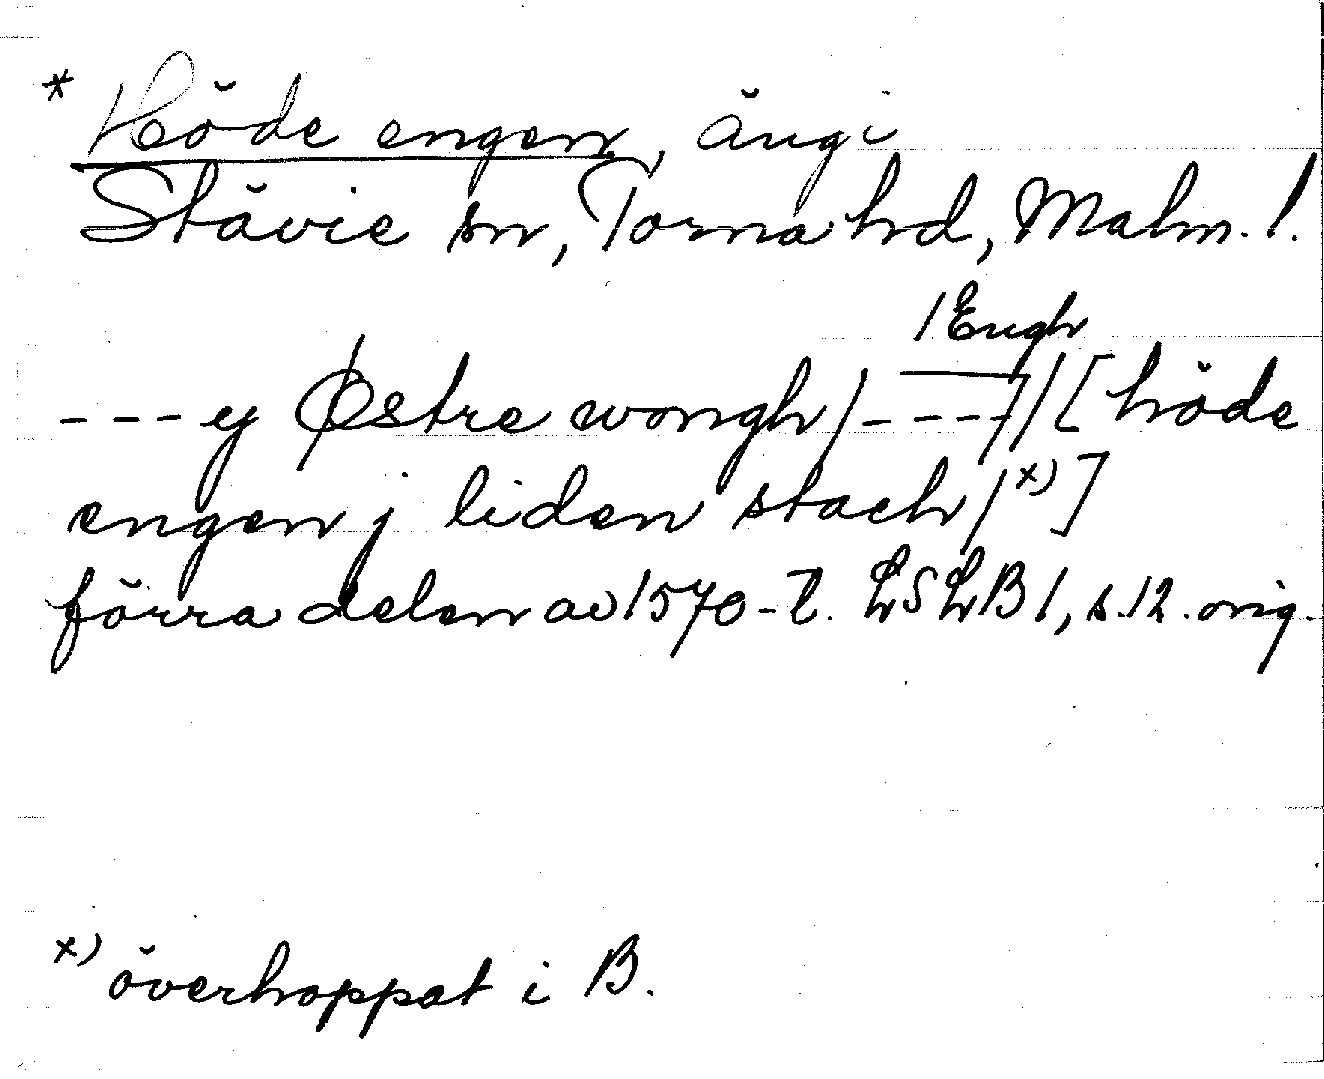 * Höde engen, äng i
Stävie sn, Torna hd, Malm. l.
/Engh
---ij Østre wongh/----//[höde
engen j liden stach/x)]
förra delen av 1570-t. LSLB 1, s. 12. orig.
x) överhoppat i B.